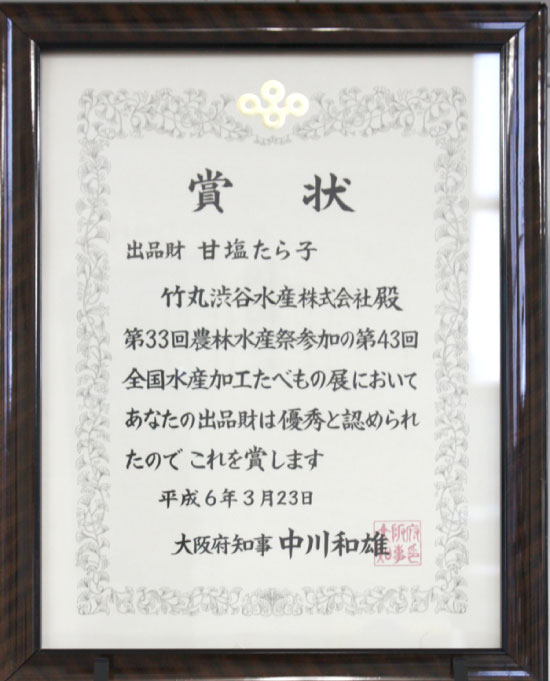 賞状
出品財 甘塩たら子
竹丸渋谷水産株式会社殿
第33回農林水産祭参加の第43回
全国水産加工たべもの展において
あなたの出品財は優秀と認められ
たので これを賞します
平成6年3月23日
大阪府知事 中川和雄